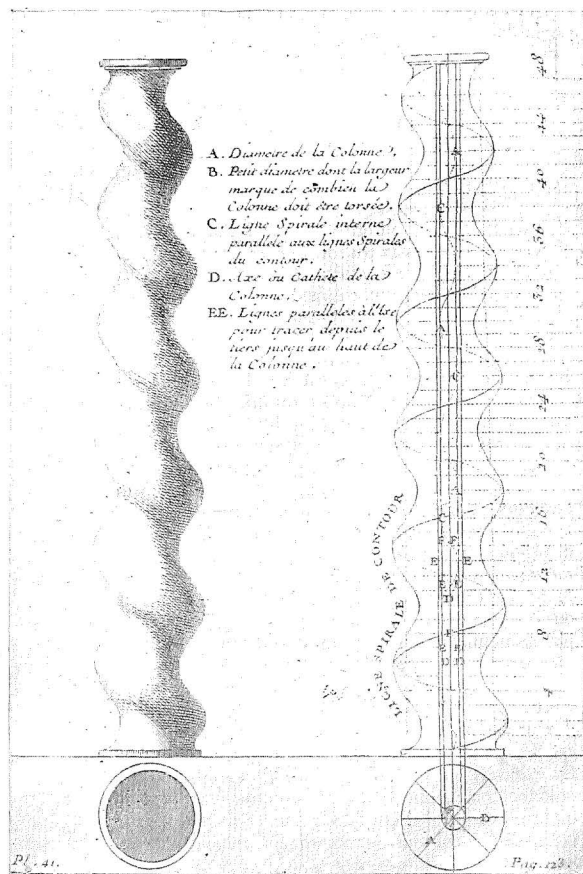 A. Diametre de la Colonne.
B. Petit diametre dont la largeur
marque de combien la
Colonne doit être torsée.
C. Ligne Spirale interne
parallele aux lignes Spirales
du contour.
D. Axe ou Cathete de la
Colonne.
EE. Lignes paralleles à l'Axe
pour tracer depuis le
tiers jusqu'au haut de
la Colonne.
48
44
40
36
32
28
24
20
16
12
8
4
A
C
A
C
A
C
E E
E E
E E
D
LIGNE SPIRALE DE CONTOUR
A
D
Pl. 41.
Pag. 123.